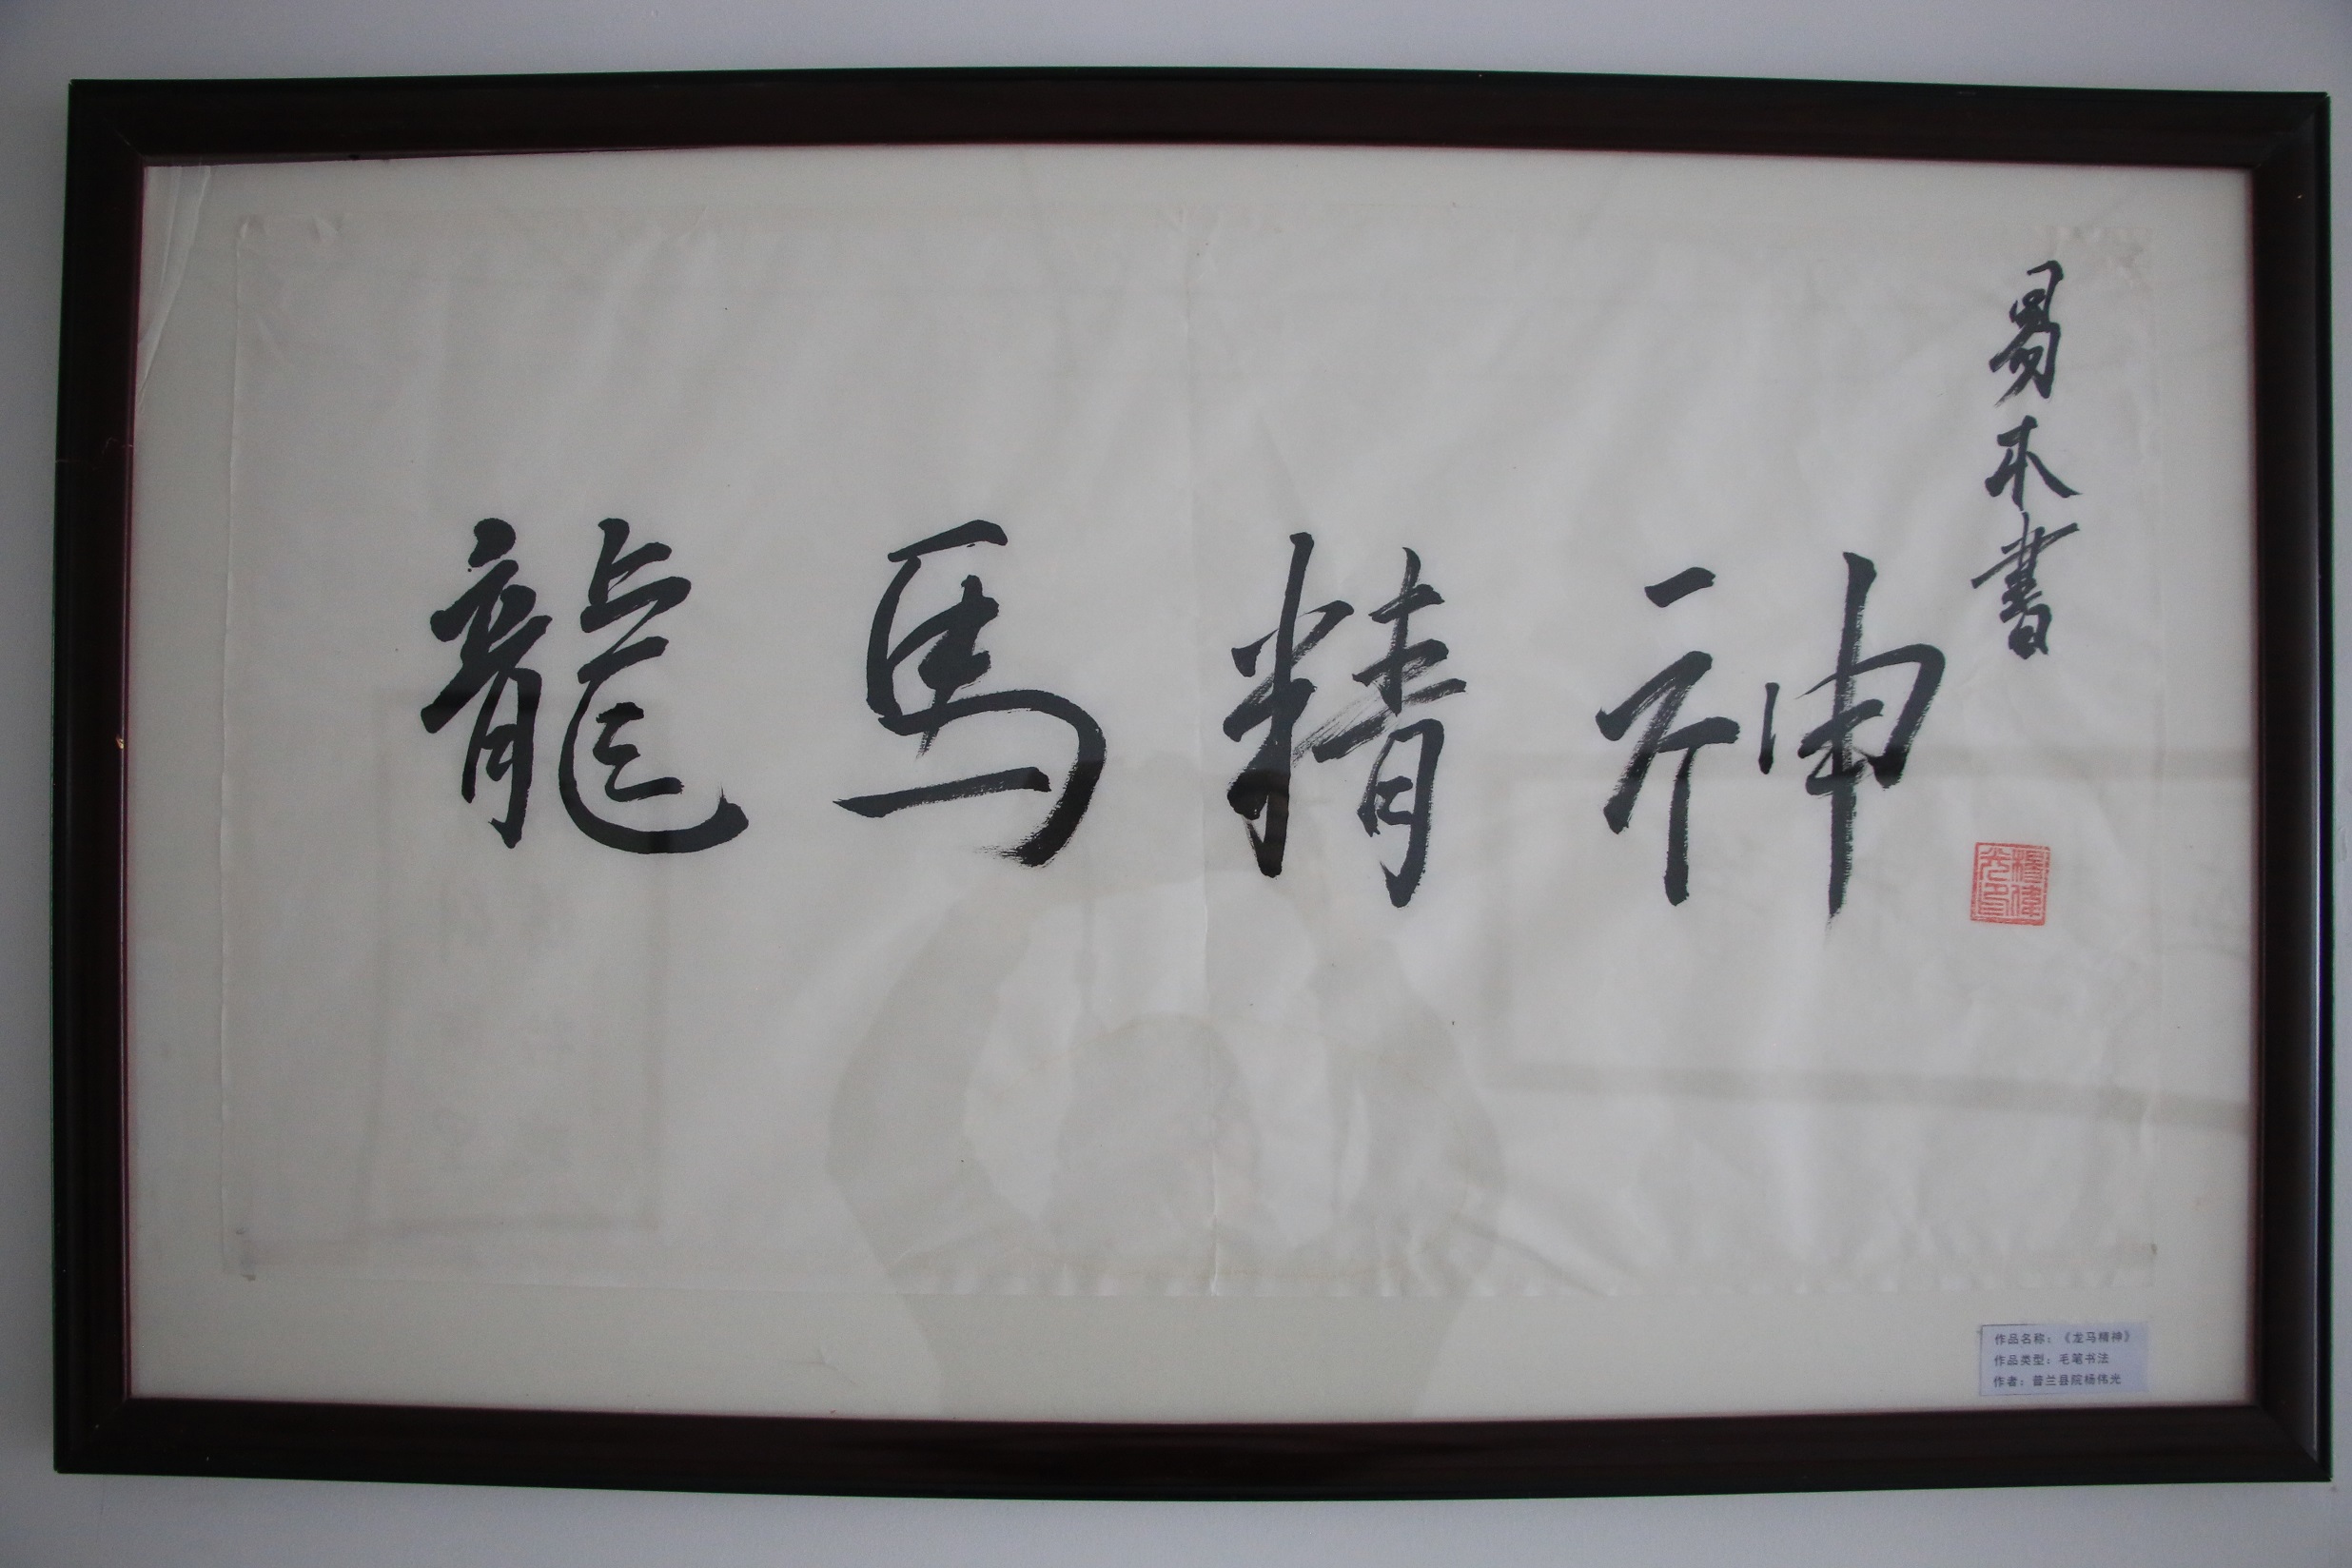 龍馬精神
易木書
楊偉光印
作品名称：《龙马精神》
作品类型：毛笔书法
作者：普兰县院杨伟光